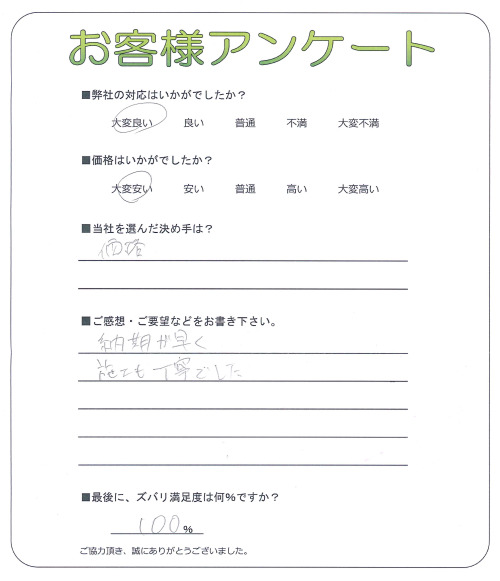 お客様アンケート
■弊社の対応はいかがでしたか？
大変良い 良い 普通 不満 大変不満
■価格はいかがでしたか？
大変安い 安い 普通 高い 大変高い
■当社を選んだ決め手は？
価格
■ご感想・ご要望などをお書き下さい。
納期が早く
施工も丁寧でした
■最後に、ズバリ満足度は何％ですか？
100％
ご協力頂き、誠にありがとうございました。